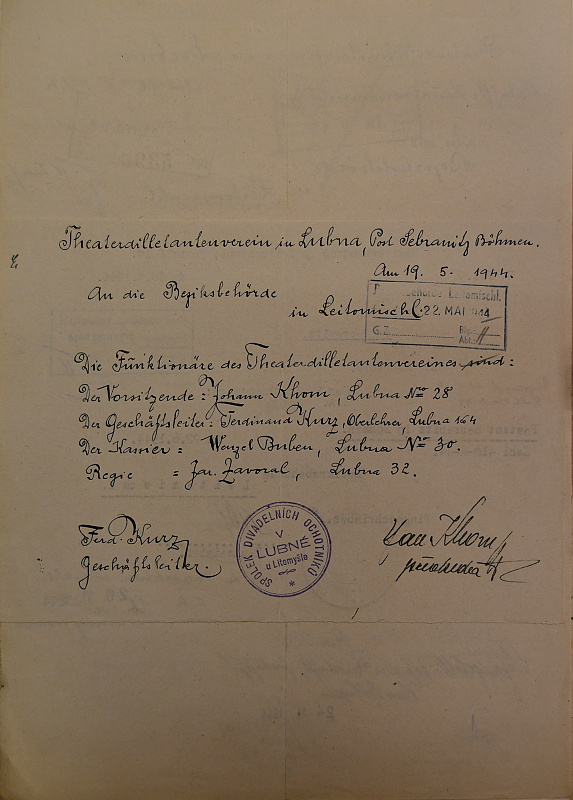 Theaterdilletantenverein in Lubna, Post Sebranitz Böhmen.
Am 19. 5. 1944.
An die Bezirksbehörde
in Leitomischl.
behörde Leitomischl.
22. MAI 1944
G. Z.
Beil.
Abt.
Die Funktionäre des Theaterdilletantenvereines sind:
Der Vorsitzende: Johann Khom, Lubna No 28
Der Geschäftsleiter: Ferdinand Kurz, Oberlehrer, Lubna 164
Der Kassier = Wenzel Buben, Lubna No 30.
Regie = Jar. Zavoral, Lubna 32.
Ferd. Kurz
Geschäftsleiter.
SPOLEK DIVADELNÍCH OCHOTNÍKŮ
V
LUBNÉ
u Litomyšle
Jan Khom